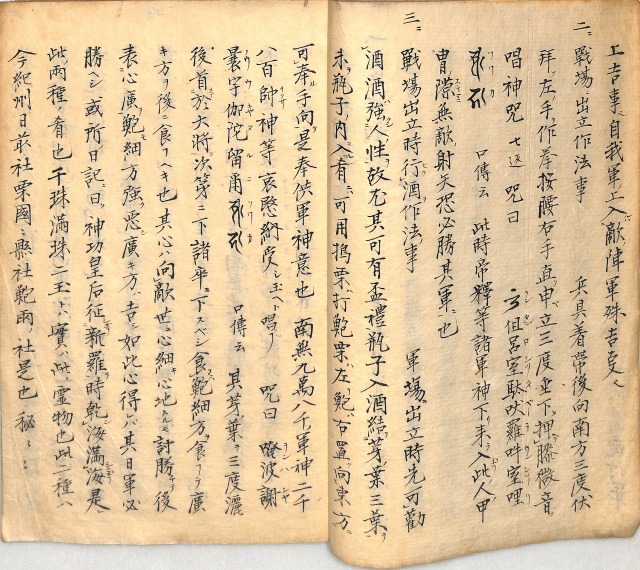 上吉事自我軍上入敵陣軍殊吉支〻
二 戦場出立作法事 兵具着帯後向南方三度伏
拝左手作拳按腰右手直申立三度垂下押膝微音
唱神咒 七返 咒曰 𑖌佀呂室駄吠羅吽室哩
口傳云 此時帝釋等諸軍神下来入此人甲
冑隙無敵射矢恐必勝其軍也
三 戦場出立時行酒作法事 軍場出立時先可勸
酒酒強人性故尤其可有盃禮瓶子入酒結芽葉三葉
未瓶子内入肴可用搗栗打鮑栗左鮑右置向東方
可奉手向是奉供軍神意也 南無九萬八千軍神二千
八百師神等哀愍納受玉ヘト唱 咒曰 唵波謝
曩宇伽陀留甫 口傳云 其芽葉三度灑
後首於大将次第下諸卒下ヘシ食鮑細方食ヲ廣
キ方ヲ後ニ食ヘキ也其心ハ向敵世心細心地討勝後
表心廣鮑細方強悪廣キ方吉如此心得ハ其日軍必
勝ヘシ或所日記曰神功皇后征新羅時乾海満海是
此両種肴也干珠満珠二玉ト實此霊物也此二種ハ
今紀州日前社栗國懸社鮑両社是也 秘〻